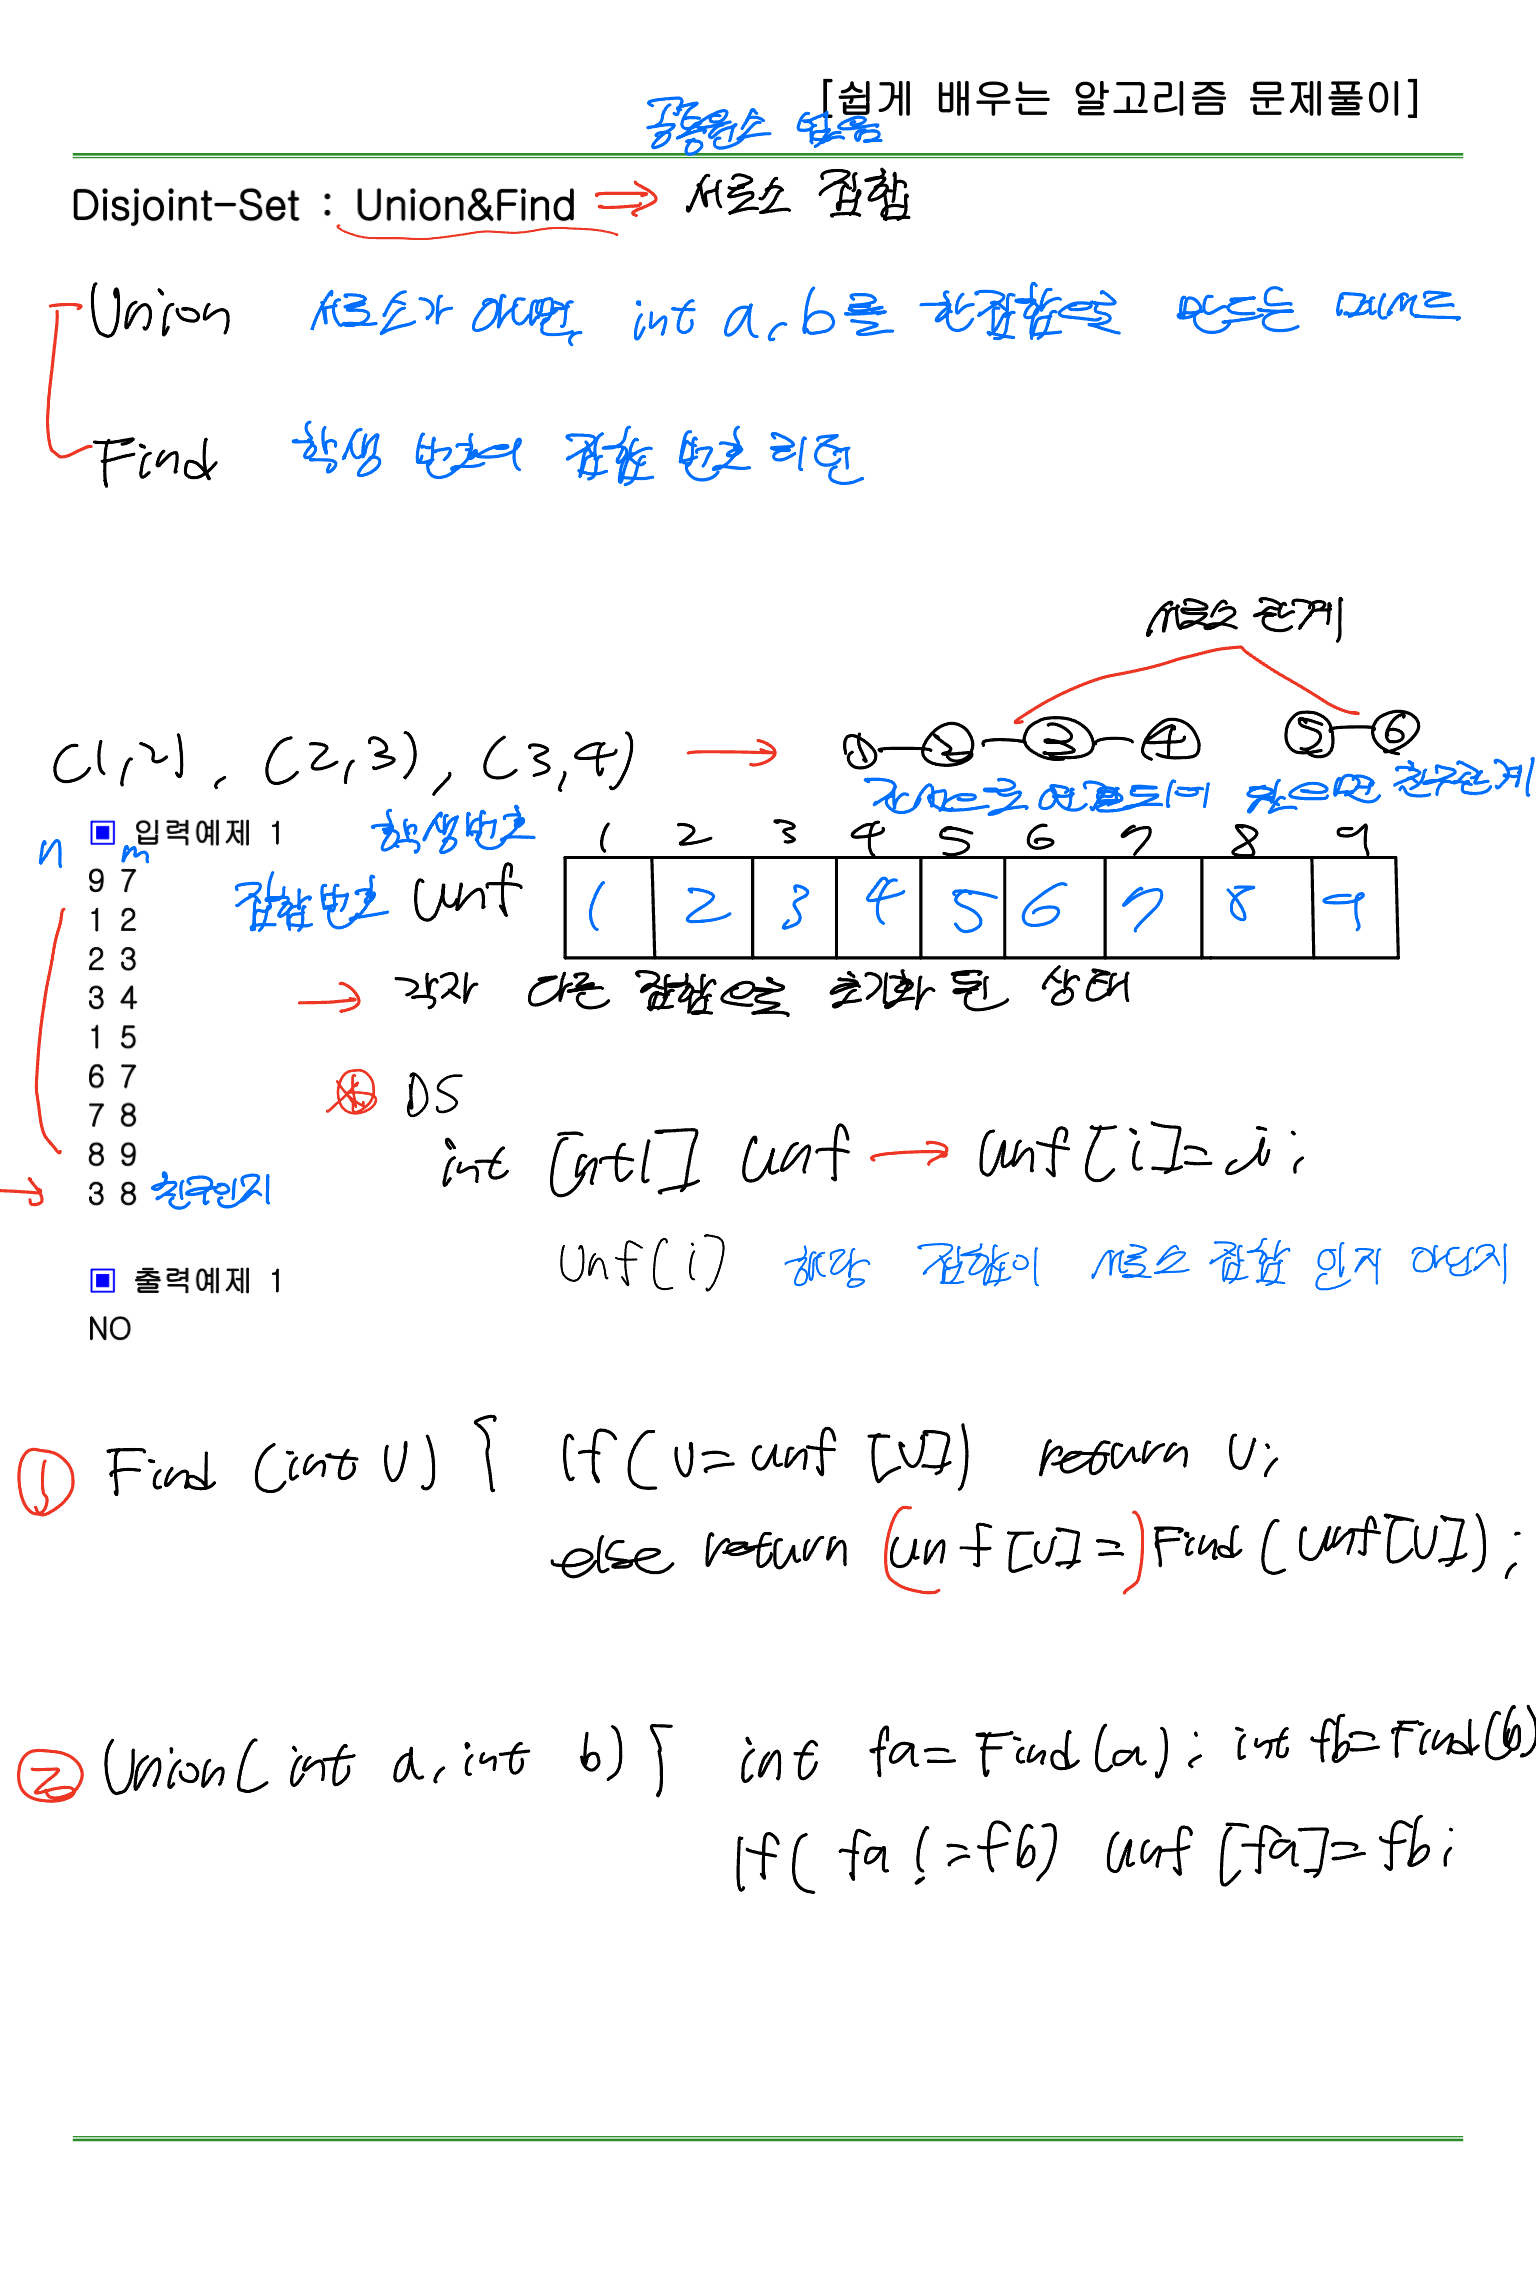 [쉽게 배우는 알고리즘 문제풀이]
공통원소 없음
Disjoint-Set : Union&Find ⇒ 서로소 집합
Union 서로소가 아니면, int a, b를 한집합으로 만드는 메서드
Find 학생 번호의 집합 번호 리턴
서로소 관계
(1,2), (2,3), (3,4) → ①-②-③-④ ⑤-⑥
간선으로 연결되어 있으면 친구관계
▣ 입력예제 1
학생번호 1 2 3 4 5 6 7 8 9
n m
집합번호 unf 1 2 3 4 5 6 7 8 9
9 7
1 2
2 3
3 4 → 각자 다른 집합으로 초기화 된 상태
1 5
6 7
7 8
8 9
→ 3 8 친구인지
DS
int [n+1] unf → unf[i]=i;
Unf(i) 해당 집합이 서로소 집합 인지 아닌지
▣ 출력예제 1
NO
① Find (int v) { If( v= unf [v]) return v;
else return (unf[v]=) Find (unf[v]);
② Union( int a, int b) { int fa= Find(a); int fb= Find(b)
If( fa != fb) unf [fa]= fb;